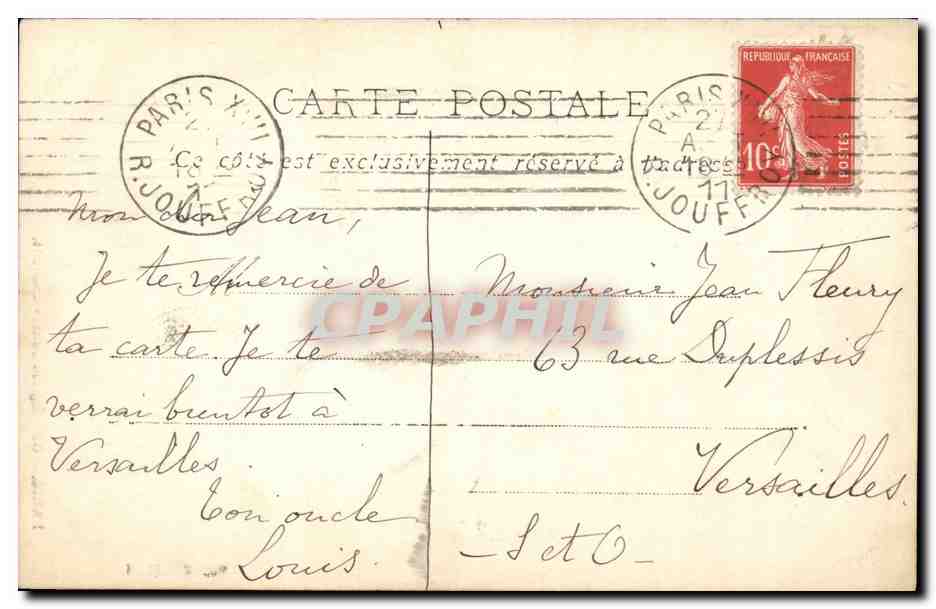 CARTE POSTALE
Ce côté est exclusivement réservé à l'adresse
PARIS XVII
R. JOUFFROY
PARIS XVII
27
A
18
11
R. JOUFFROY
REPUBLIQUE FRANÇAISE
10c
POSTES
Mon cher Jean,
Je te remercie de
ta carte. Je te
verrai bientot à
Versailles.
Ton oncle
Louis.
Monsieur Jean Fleury
63 rue Duplessis
Versailles.
- S et O -
CPAPHIL